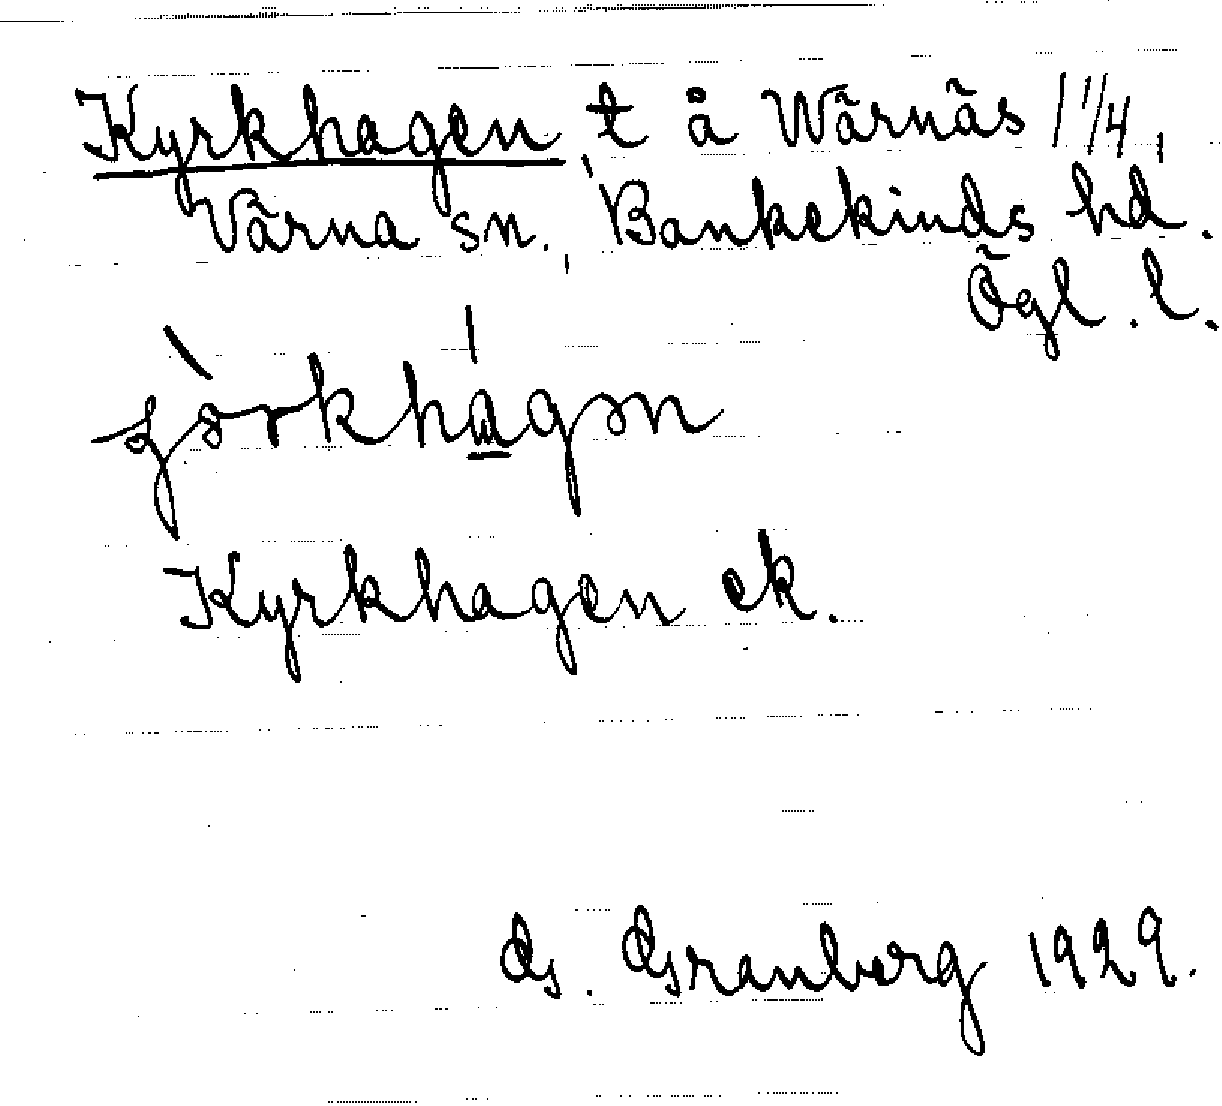 Kyrkhagen t å Wärnäs 1 1/4,
Värna sn., Bankekinds hd.
Ögl. l.
Kyrkhagen ek.
G. Granberg 1929.